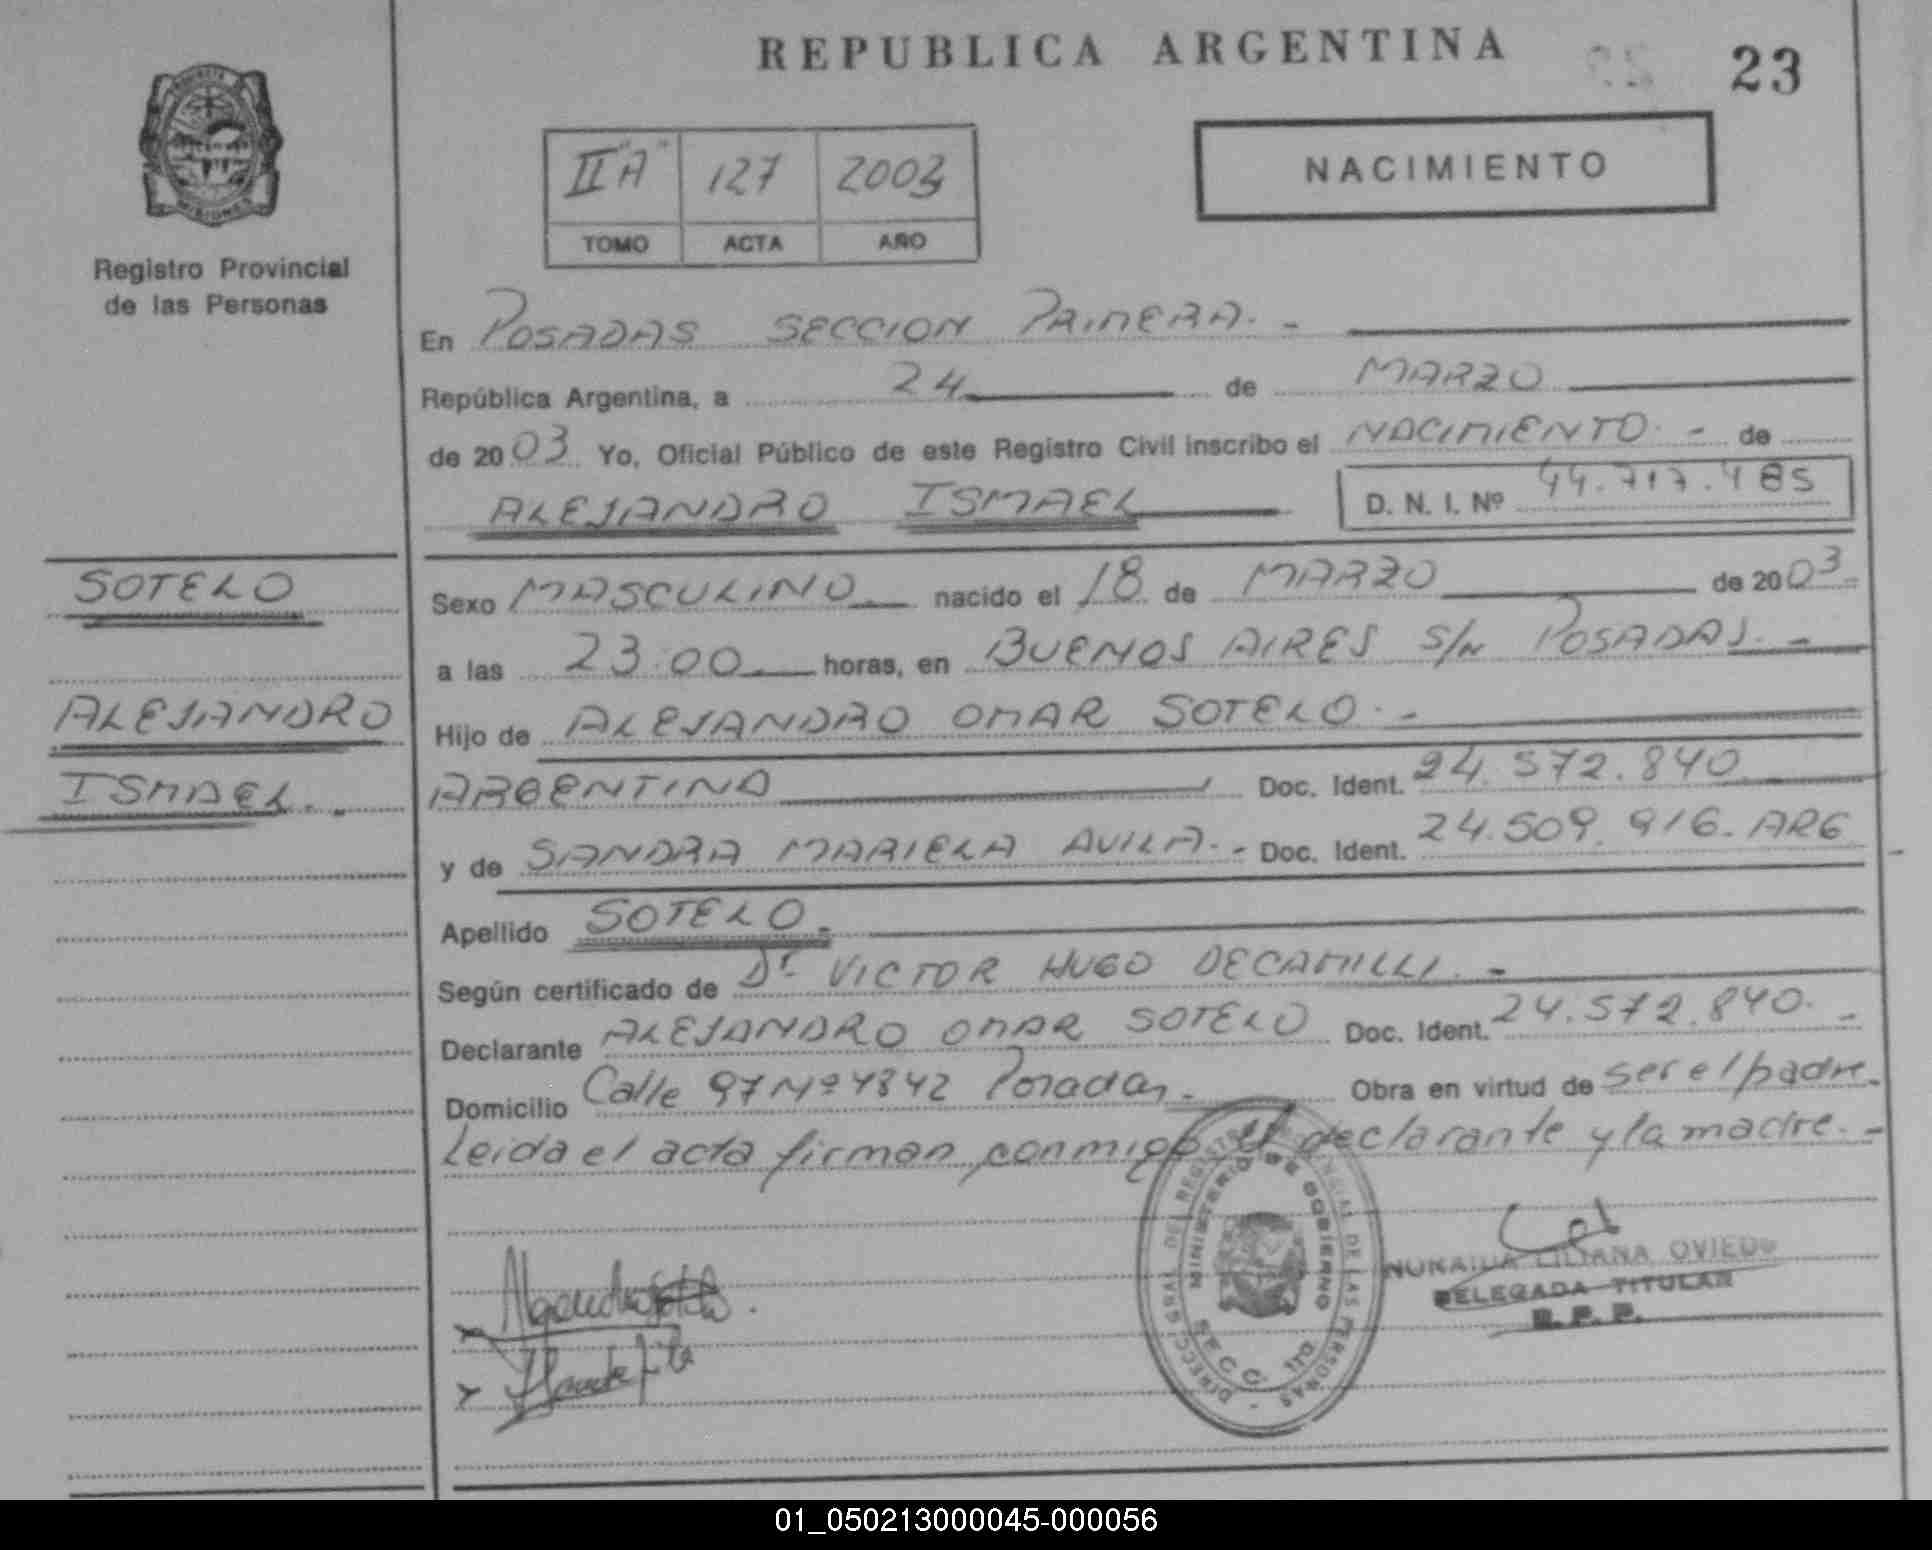 REPUBLICA ARGENTINA
23
PROVINCIA
MISIONES
Registro Provincial
de las Personas
II "A" 127 2003
TOMO ACTA AÑO
NACIMIENTO
En POSADAS SECCION PRIMERA. -
República Argentina, a 24 de MARZO
de 2003 Yo, Oficial Público de este Registro Civil inscribo el NACIMIENTO. - de
ALEJANDRO ISMAEL D. N. I. Nº 44.717.485
SOTELO
ALEJANDRO
ISMAEL. -
Sexo MASCULINO. nacido el 18 de MARZO de 2003 -
a las 23:00. horas, en BUENOS AIRES S/N POSADAS. -
Hijo de ALEJANDRO OMAR SOTELO. -
ARGENTINO Doc. Ident. 24.572.840
y de SANDRA MARIELA AVILA. - Doc. Ident. 24.509.916. ARG
Apellido SOTELO.
Según certificado de Dr VICTOR HUGO DECAMILLI. -
Declarante ALEJANDRO OMAR SOTELO Doc. Ident. 24.572.840. -
Domicilio Calle 97 Nº 4842 Posadas. - Obra en virtud de ser el padre.
Leida el acta firman conmigo el declarante y la madre. -
DIRECC. GRAL. DEL REGISTRO PROVINCIAL DE LAS PERSONAS
MINISTERIO DE GOBIERNO
SECC.
LILIANA OVIEDO
DELEGADA TITULAR
R. P. P.
01_050213000045-000056